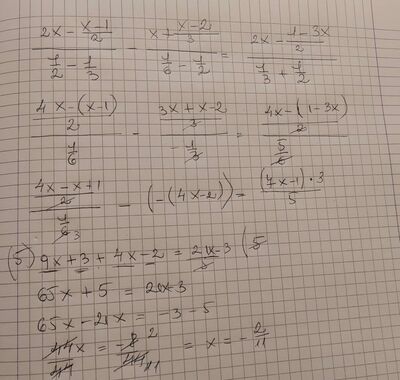 (2x - (x-1)/2) / (1/2 - 1/3) - (x + (x-2)/3) / (1/6 - 1/2) = (2x - (1-3x)/2) / (1/3 + 1/2)
((4x-(x-1))/2) / (1/6) - ((3x+x-2)/3) / (-1/3) = ((4x-(1-3x))/2) / (5/6)
((4x-x+1)/2) / (1/6 3) - (-(4x-2)) = ((7x-1)·3)/5
(5) 9x+3 + 4x-2 = (21x-3)/5 (5
65x + 5 = 21x-3
65x - 21x = -3-5
44x/44 = -8 2/44 11 = x = -2/11